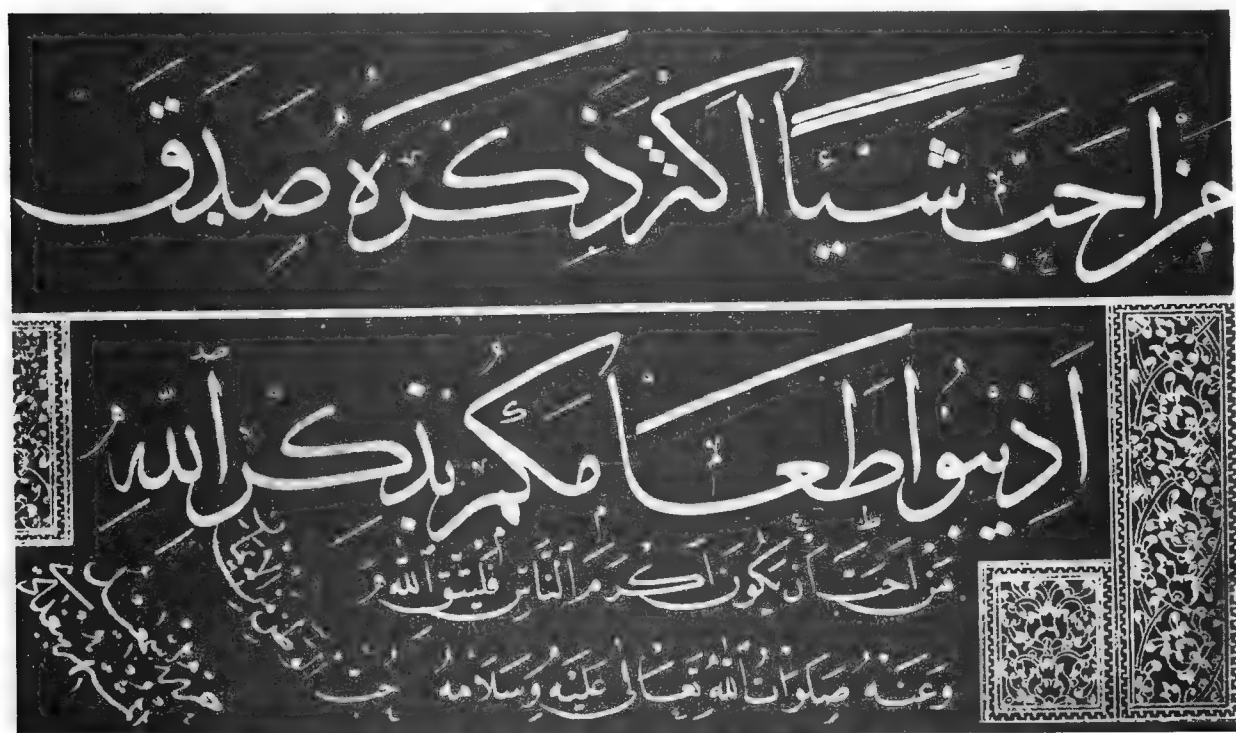 من احب شيئا اكثر ذكره صدق
اَذيبوا طعامكم بذكر الله
من احب ان يكون اكرم الناس فليتق الله
وعنه صلوات الله تعالى عليه وسلامه حب